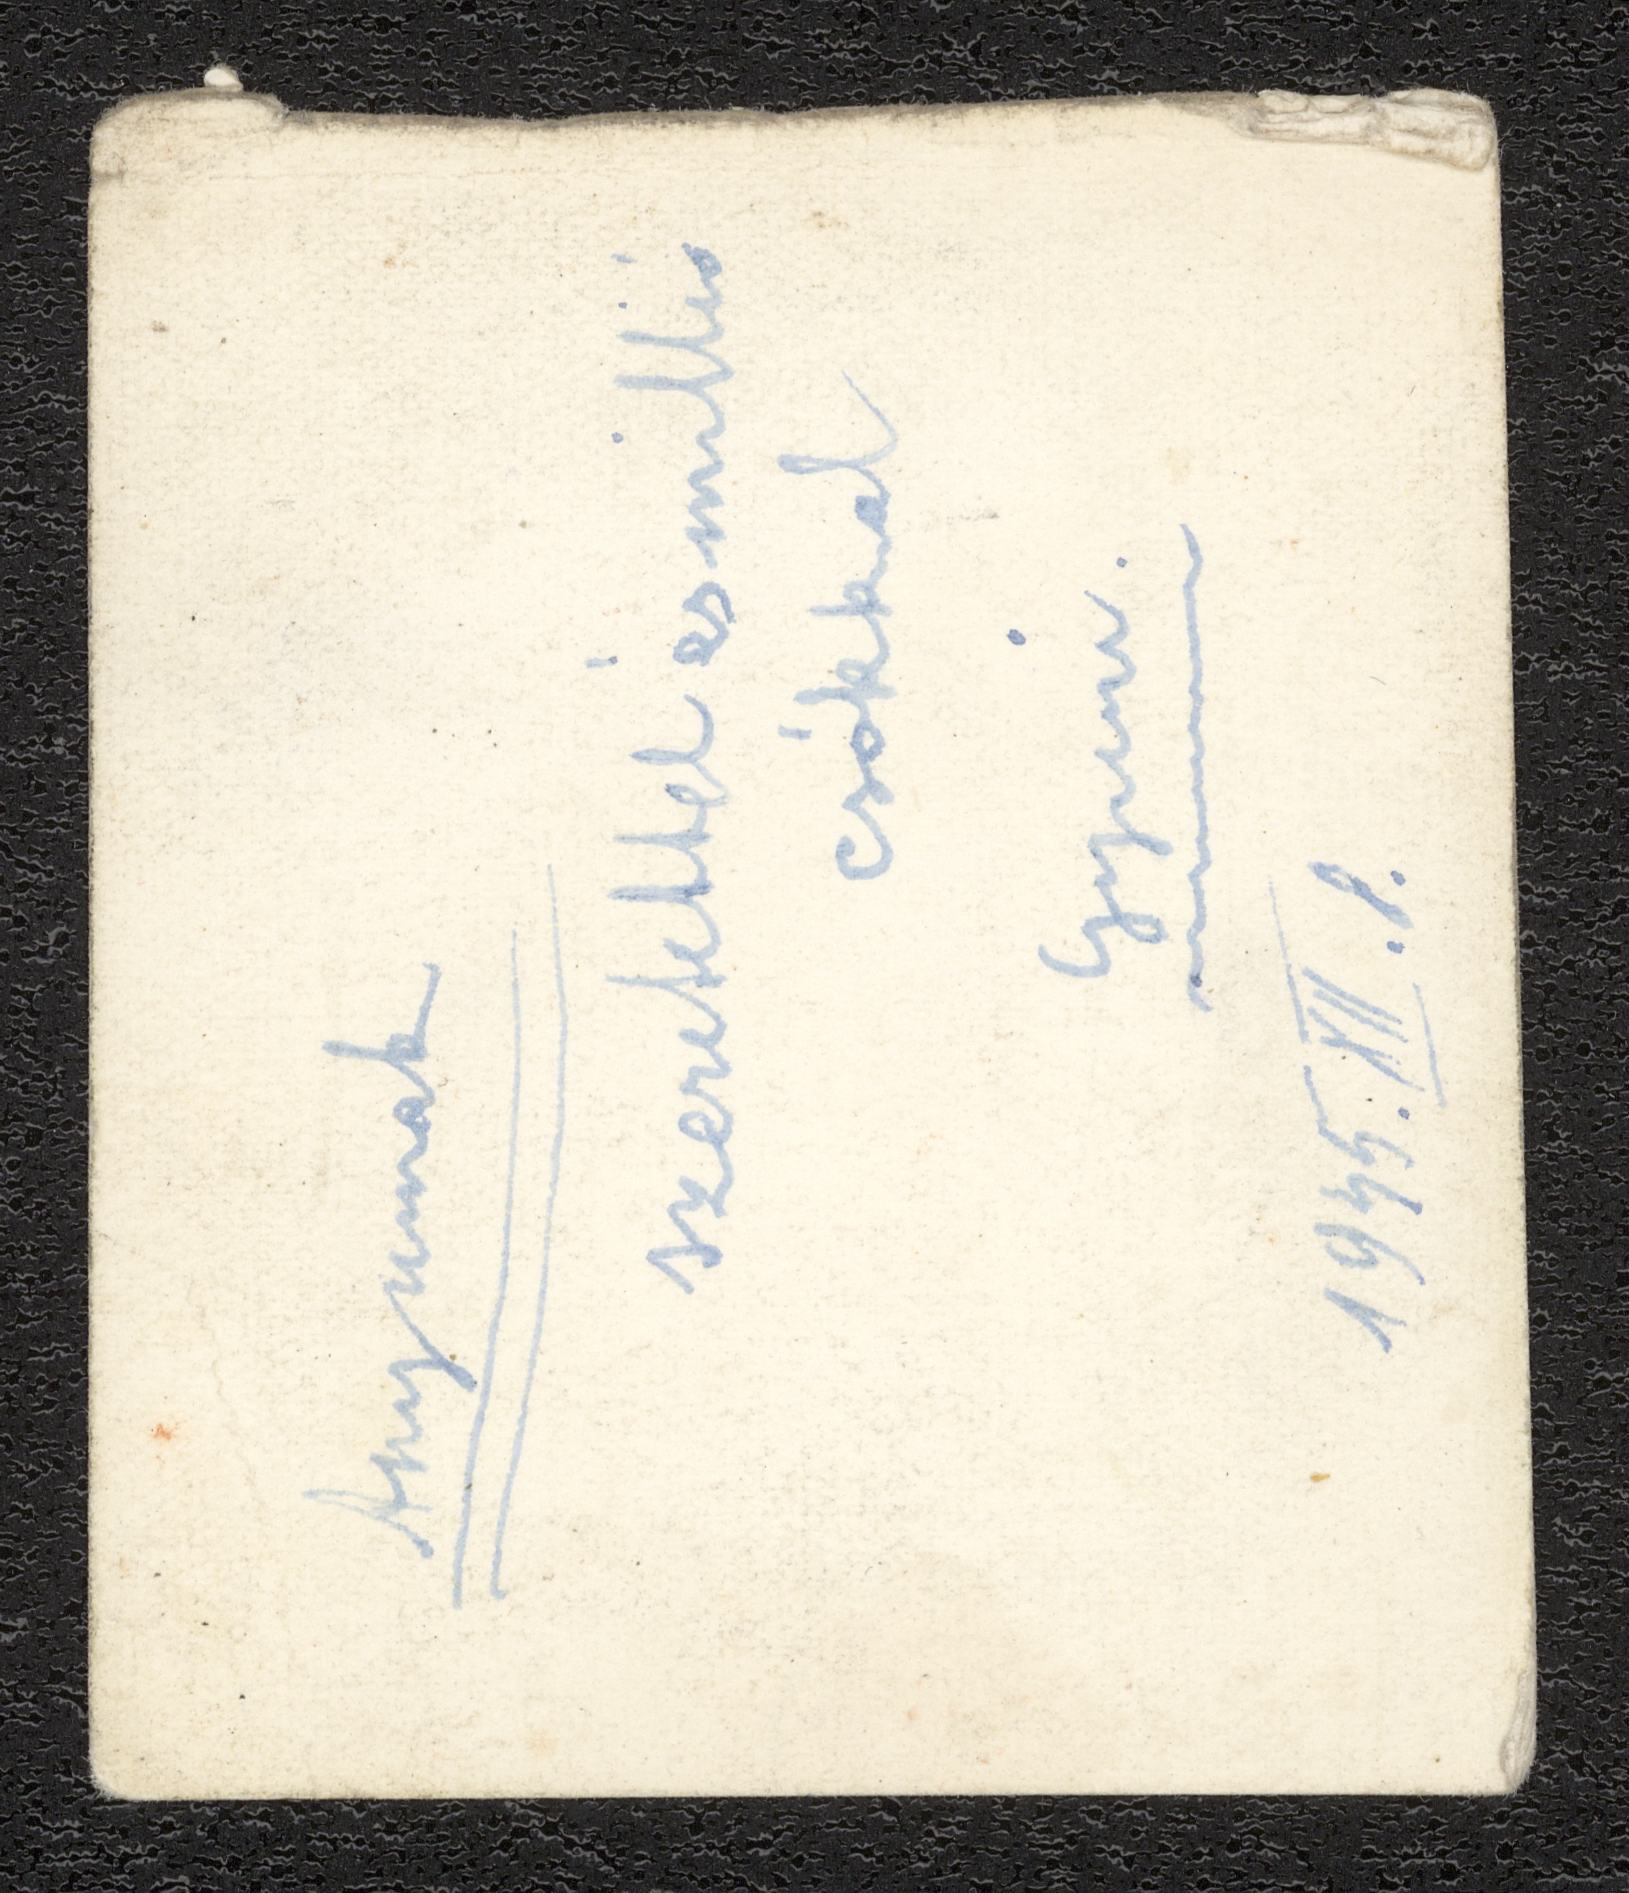 Anyunak
szeretettel és millió
csókkal
Gyuri.
1945. XII. 8.